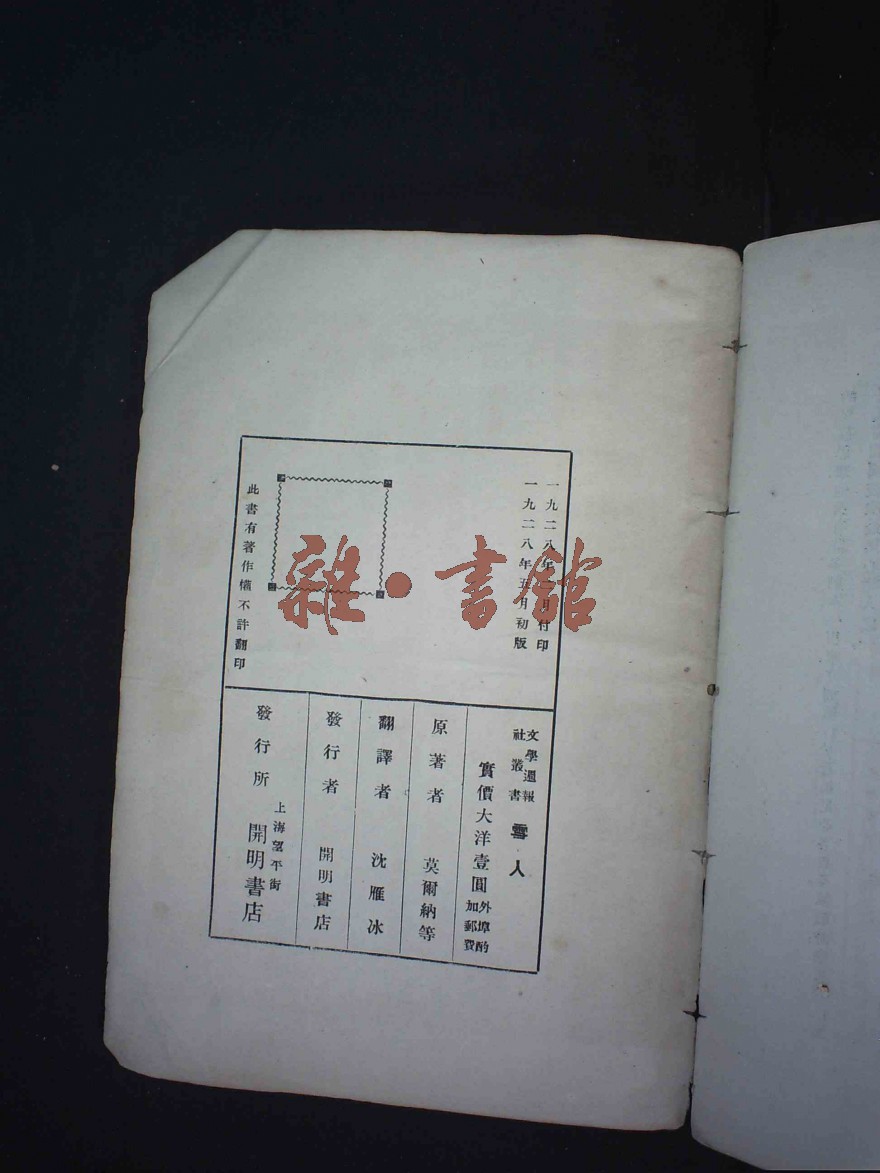 一九二八年 月付印
一九二八年五月初版
此書有著作權不許翻印
文學週報
社叢書
雪人
實價大洋壹圓
外埠酌
加郵費
原著者 莫爾納等
翻譯者 沈雁冰
發行者 開明書店
發行所
上海望平街
開明書店
雜·書館